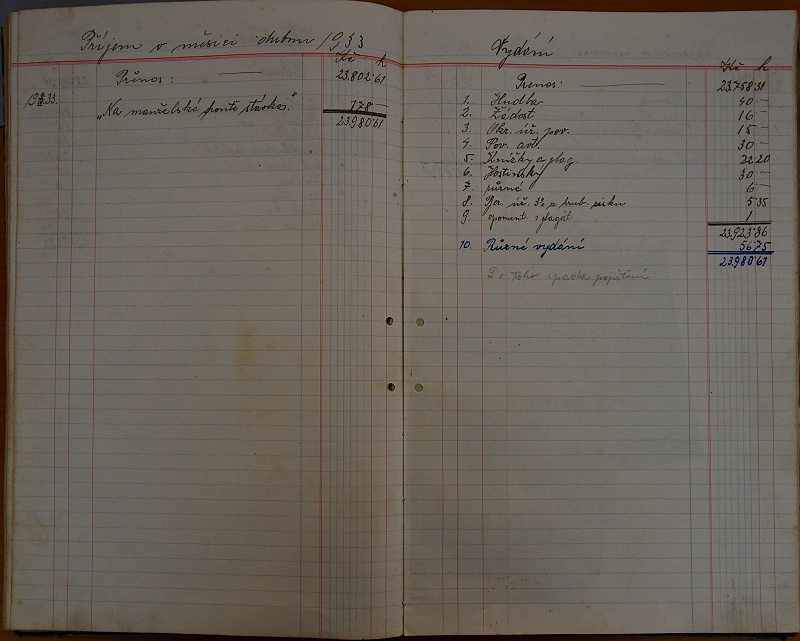 Příjem v měsíci dubnu 1933
Kč h
Přenos: 23.802·61
"Na manželské frontě stávka." 178 —
23.980·61
Vydání
Kč h
Přenos: 23.758·31
1. Hudba 40 —
2. Žádost 16 —
3. Okr. úř. pov. 15 —
4. Pov. aut. 30 —
5. Knížky a plag. 22 20
6. Hostinský 30 —
7. různé 6 —
8. Ber. úř. 3% z hrub. zisku 5·35
9. 1 plagát 1 —
23.923·86
10. Různé vydání 56·75
23.980·61
Do toho spadá pojištění